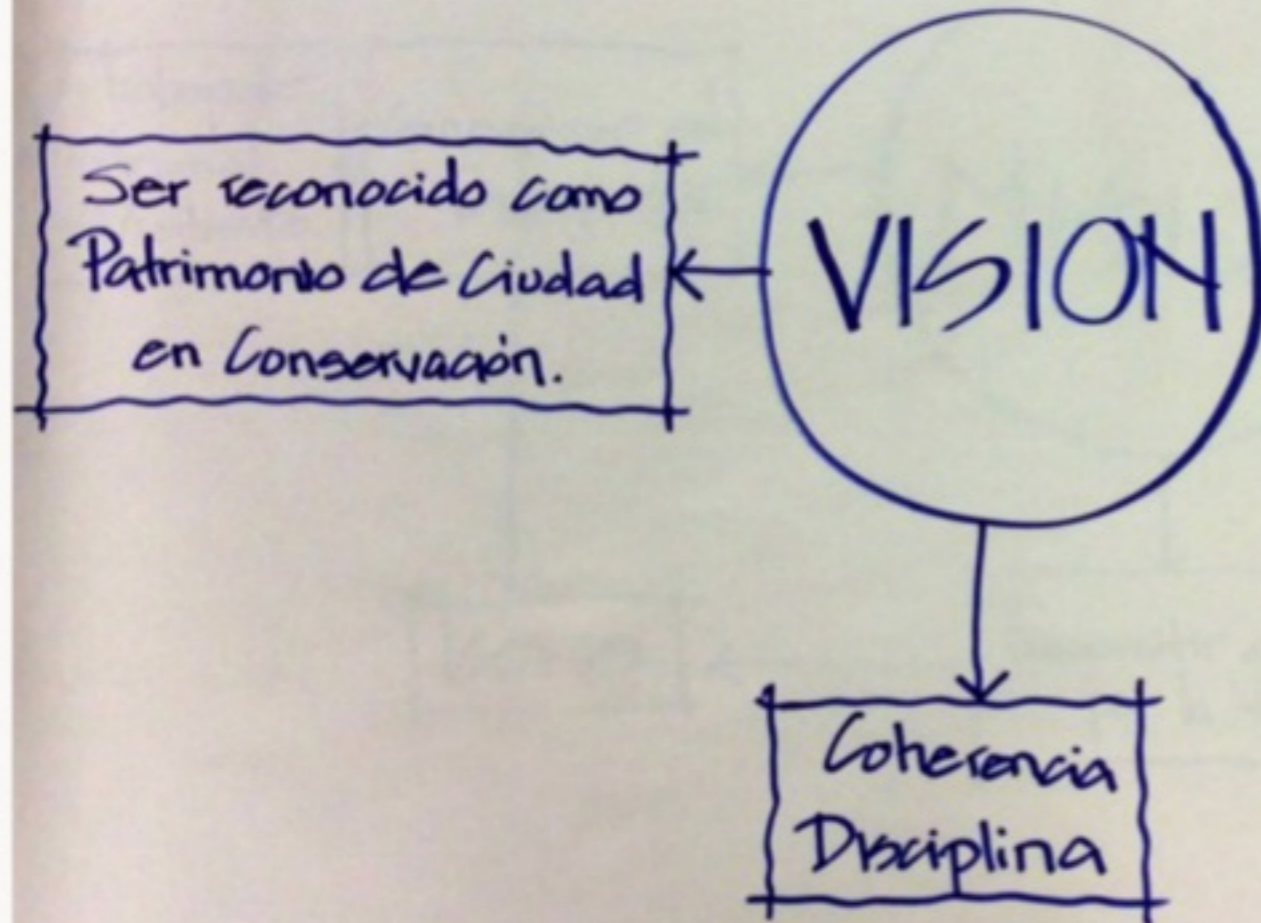 VISION
Ser reconocido como
Patrimonio de Ciudad
en Conservación.
Coherencia
Disciplina